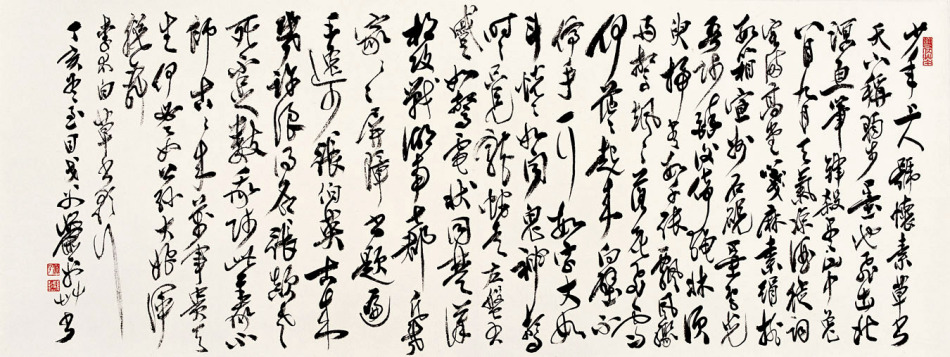 少年上人號懷素草書
天下稱獨步墨池飛出北
溟魚筆鋒殺盡中山兔
八月九月天氣涼酒徒詞
客滿高堂箋麻素絹排
數箱宣州石硯墨色光
吾師醉後倚繩床須
臾掃盡數千張飄風驟
雨驚颯颯落花飛雪
何茫茫起來向壁不
停手一行數字大如
斗恍恍如聞鬼神驚
時時只見龍蛇走左盤右
蹙如驚電狀同楚漢
相攻戰湖南七郡凡幾
家家家屏障書題遍
王逸少張伯英古來
幾許浪得名張顛老
死不足數我師此義不
師古古來萬事貴天
生何必要公孫大娘渾
脫舞
李太白草書歌行
丁亥